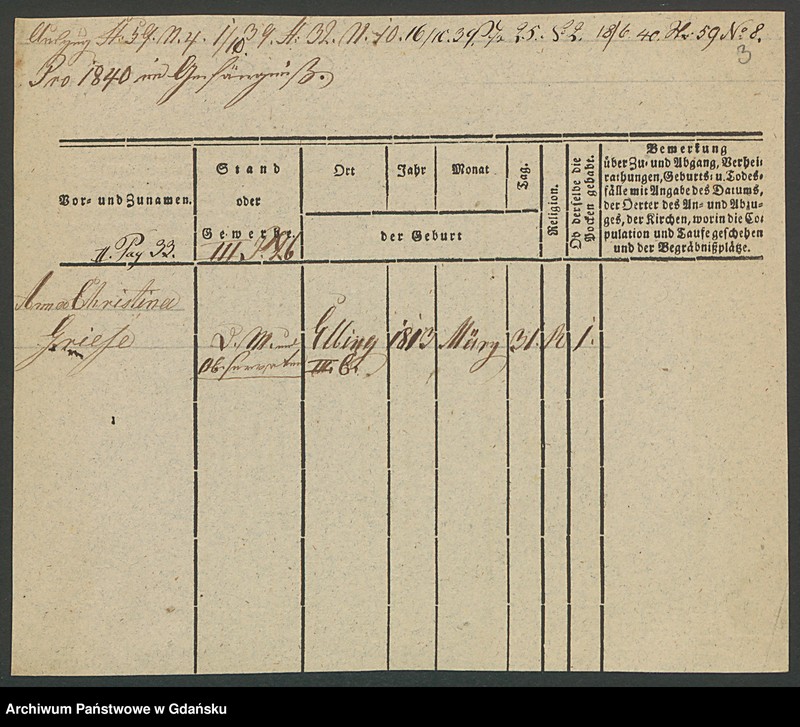 St. 59. N. 4. 1/10 39. St. 32. N. 10. 16/10. 39. 25. 18/6 40. St. 59 No 8.
3
Pro 1840 im Gefängniß.
Vor- und Zunamen.
II. Pag 33.
Stand
oder
Gewerbe.
III. P. 26
Ort
Jahr
Monat
Tag.
der Geburt
Religion.
Ob derselbe die
Pocken gehabt.
Bemerkung
über Zu- und Abgang, Verhei-
rathungen, Geburts- u. Todes-
fälle mit Angabe des Datums,
der Oerter des An- und Abzu-
ges, der Kirchen, worin die Co-
pulation und Taufe geschehen
und der Begräbnißplätze.
Anna Christina
Griese
D. M. und
Observatin
Elbing
III. C.
1813
März
31.
1.
Archiwum Państwowe w Gdańsku